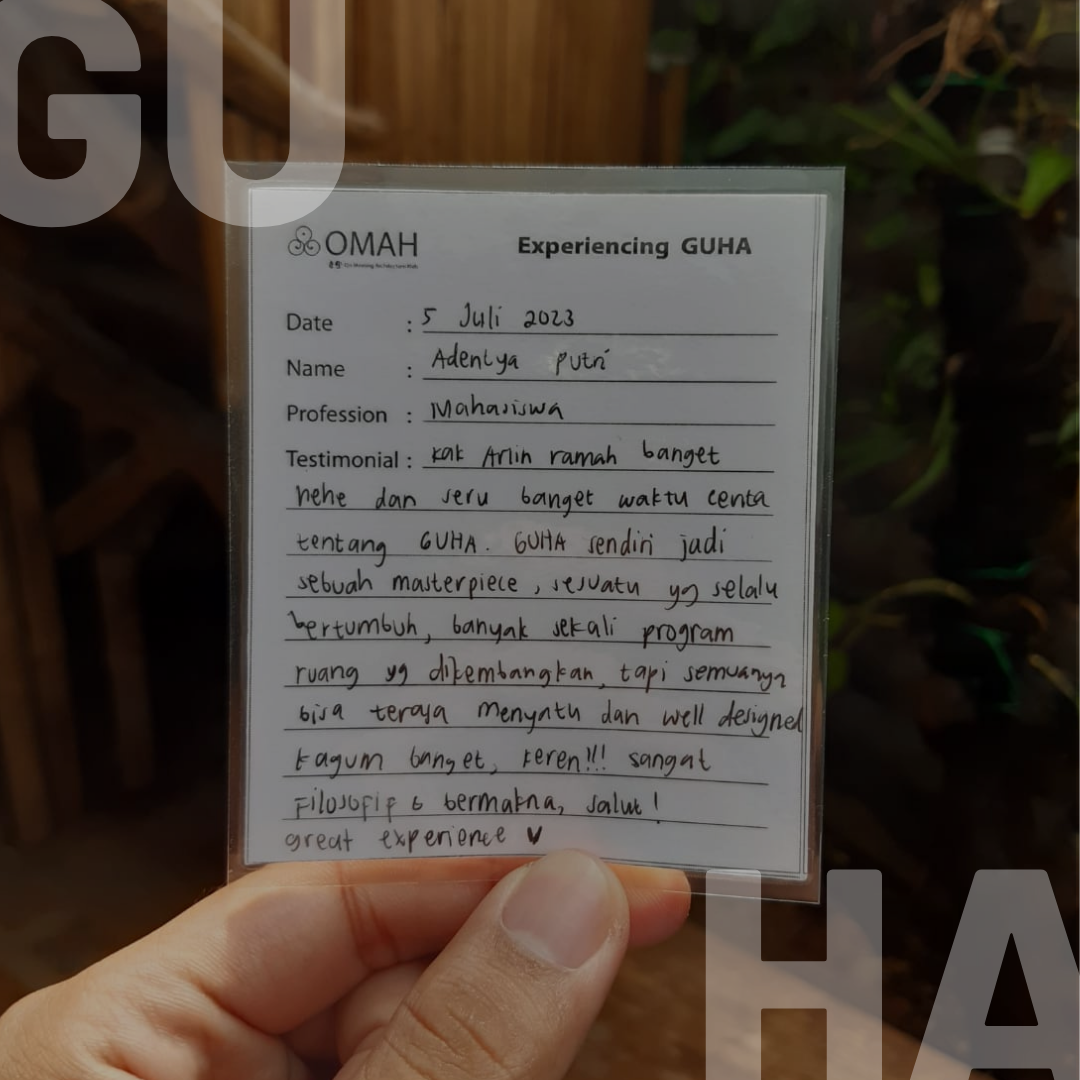 GU
OMAH
Experiencing GUHA
Date : 5 Juli 2023
Name : Adentya Putri
Profession : Mahasiswa
Testimonial : kak Arlin ramah banget
hehe dan seru banget waktu cerita
tentang GUHA. GUHA sendiri jadi
sebuah masterpiece, sesuatu yg selalu
bertumbuh, banyak sekali program
ruang yg dikembangkan, tapi semuanya
bisa terasa menyatu dan well designed
kagum banget, keren!!! sangat
Filosofif & bermakna, salut!
great experience
HA